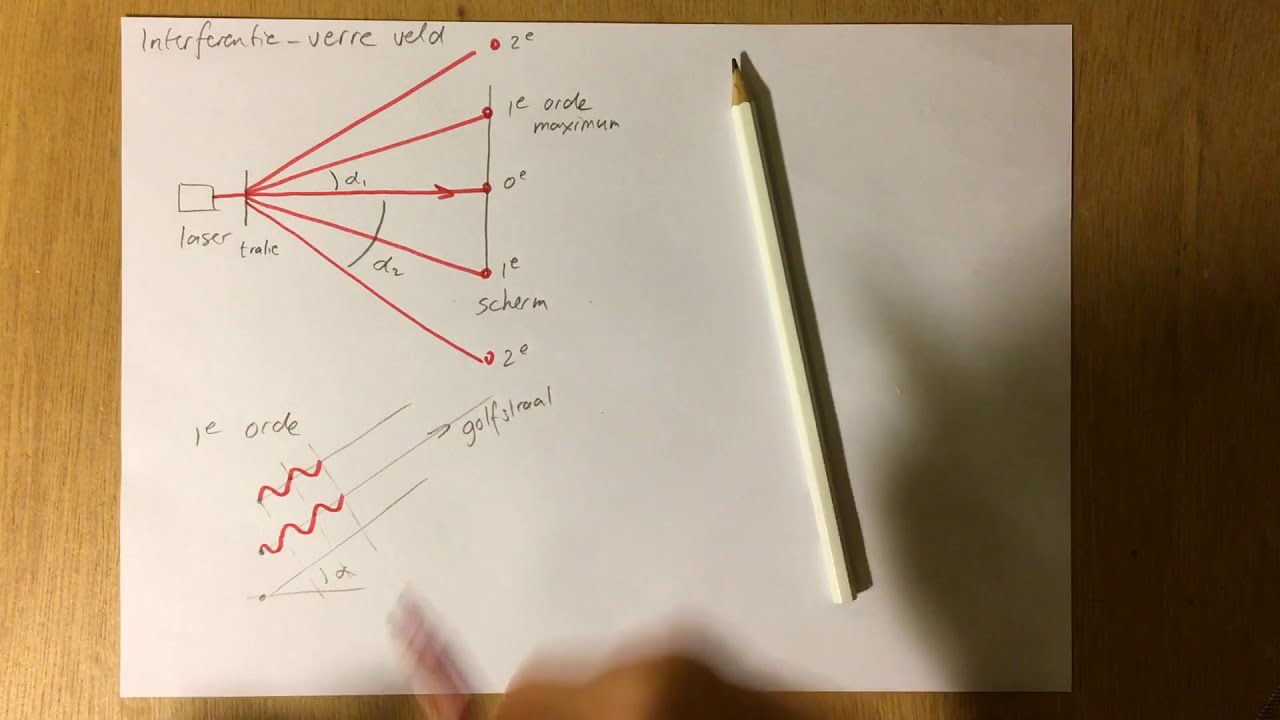 Interferentie - verre veld
2e
1e orde
maximum
α1
0e
laser
tralie
α2
1e
scherm
2e
1e orde
golfstraal
α